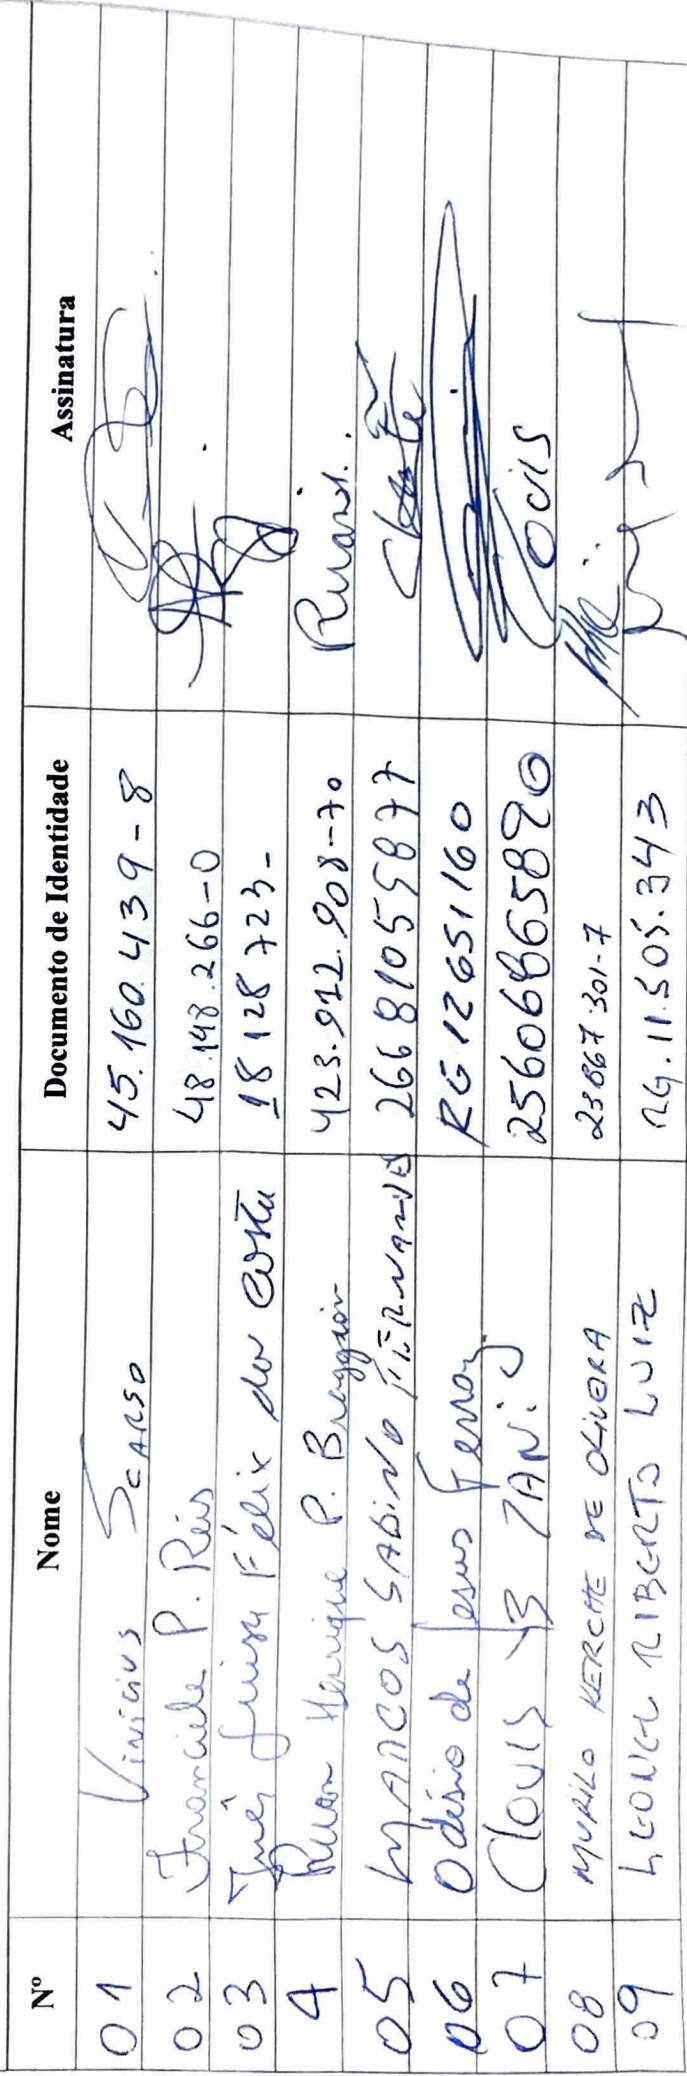 Nº Nome Documento de Identidade Assinatura
01 Vinicius Scarso 45.160.439-8
02 Franciele P. Reis 48.148.266-0
03 Inês Luisa Félix da Costa 18 128 723-
4 Ruan Henrique P. Braggion 423.912.908-70 Ruan
05 MARCOS SABINO FERNANDES 26681055877
06 Odésio de Jesus Ferraz RG 12651160
07 Clovis B ZANi 25606865890 Clovis
08 MURILO KERCHE DE OLIVEIRA 23867 301-7
09 LEONEL RIBERTO LUIZ RG.11.505.343